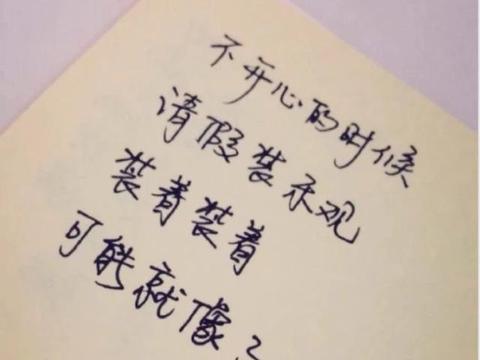 不开心的时候
请假装乐观
装着装着
可能就像